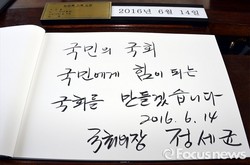 2016년 6월 14일
국민의 국회
국민에게 힘이 되는
국회를 만들겠습니다
2016. 6. 14
국회의장 정세균
Focusnews